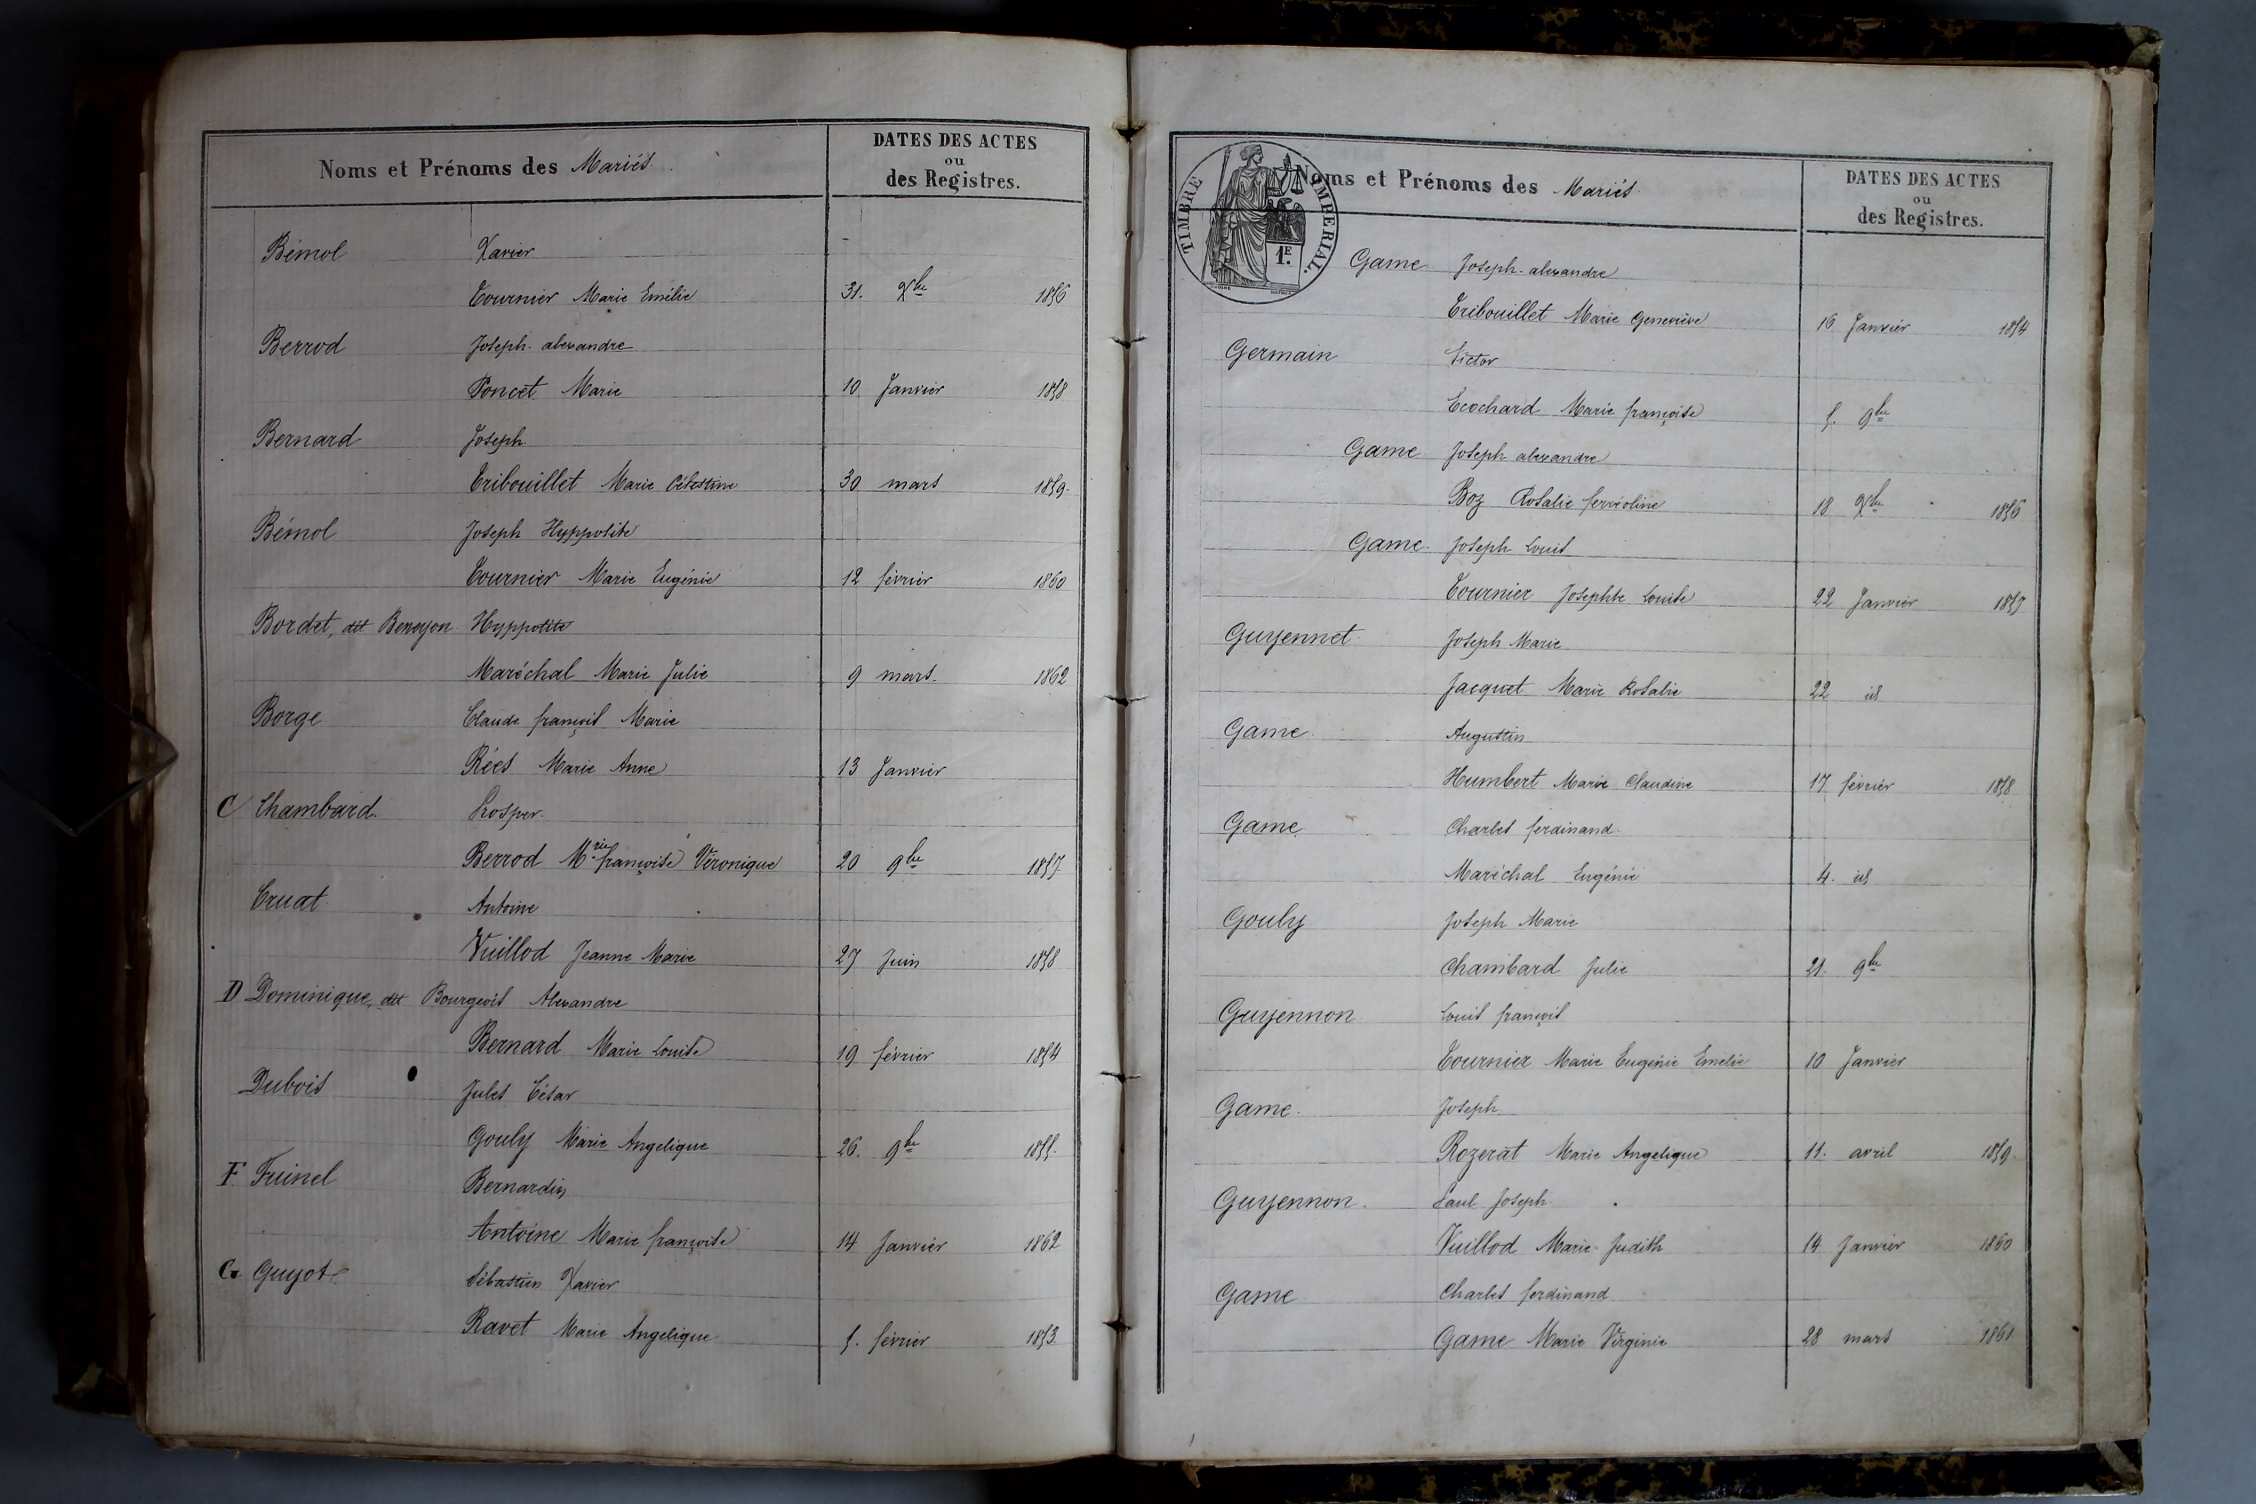 Noms et Prénoms des Mariés.
DATES DES ACTES
ou
des Registres.
Bémol Xavier
Tournier Marie Emélie 31. Xbre 1856
Berrod Joseph-alexandre
Poncet Marie 10 Janvier 1858
Bernard Joseph
Tribouillet Marie Célestine 30 mars 1859.
Bémol Joseph Hyppolite
Tournier Marie Eugénie 12 février 1860
Bordet, dit Benoyon Hyppolite
Maréchal Marie Julie 9 mars. 1862
Borge Claude françois Marie
Rées Marie Anne 13 Janvier
C Chambard. Prosper.
Berrod Mrie françoise Véronique 20 9bre 1857.
Cruat Antoine
Vuillod Jeanne Marie 27 Juin 1858
D Dominique, dit Bourgeois Alexandre
Bernard Marie Louise 19 février 1854
Dubois Jules César
Gouly Marie Angelique 26. 9bre 1855.
F Fuinel Bernardin
Antoine Marie françoise 14 Janvier 1862
G Guyot Sébastien Xavier
Ravet Marie Angelique 5. février 1853
TIMBRE IMPERIAL.
1E.
Noms et Prénoms des Mariés.
DATES DES ACTES
ou
des Registres.
Game Joseph-alexandre
Tribouillet Marie Geneviève 16 Janvier 1854
Germain Victor
Ecochard Marie françoise 5. 9bre
Game Joseph alexandre
Boz Rosalie ferréoline 18 Xbre 1856
Game Joseph Louis
Tournier Josephte Louise 22 Janvier 1857
Guyennet Joseph Marie
Jacquet Marie Rosalie 22 id
Game Augustin
Humbert Marie Claudine 17 février 1858
Game Charles ferdinand.
Maréchal Eugénie 4. id
Gouly Joseph Marie
Chambard Julie 21. 9bre
Guyennon Louis françois
Tournier Marie Eugénie Emelie 10 Janvier
Game. Joseph
Rozerat Marie Angelique 11. avril 1859.
Guyennon. Paul Joseph
Vuillod Marie-Judith 14 Janvier 1860
Game Charles ferdinand
Game Marie Virginie 28 mars 1861